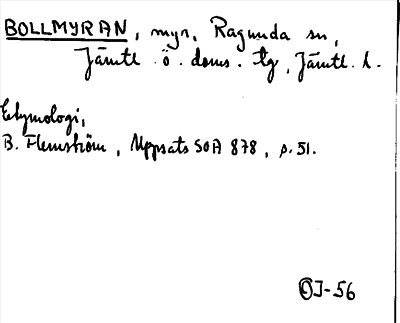 BOLLMYRAN, myr, Ragunda sn,
Jämtl. ö. doms. tg, Jämtl. l.
Etymologi,
B. Flemström, Uppsats SOA 878, s. 51.
OJ-56